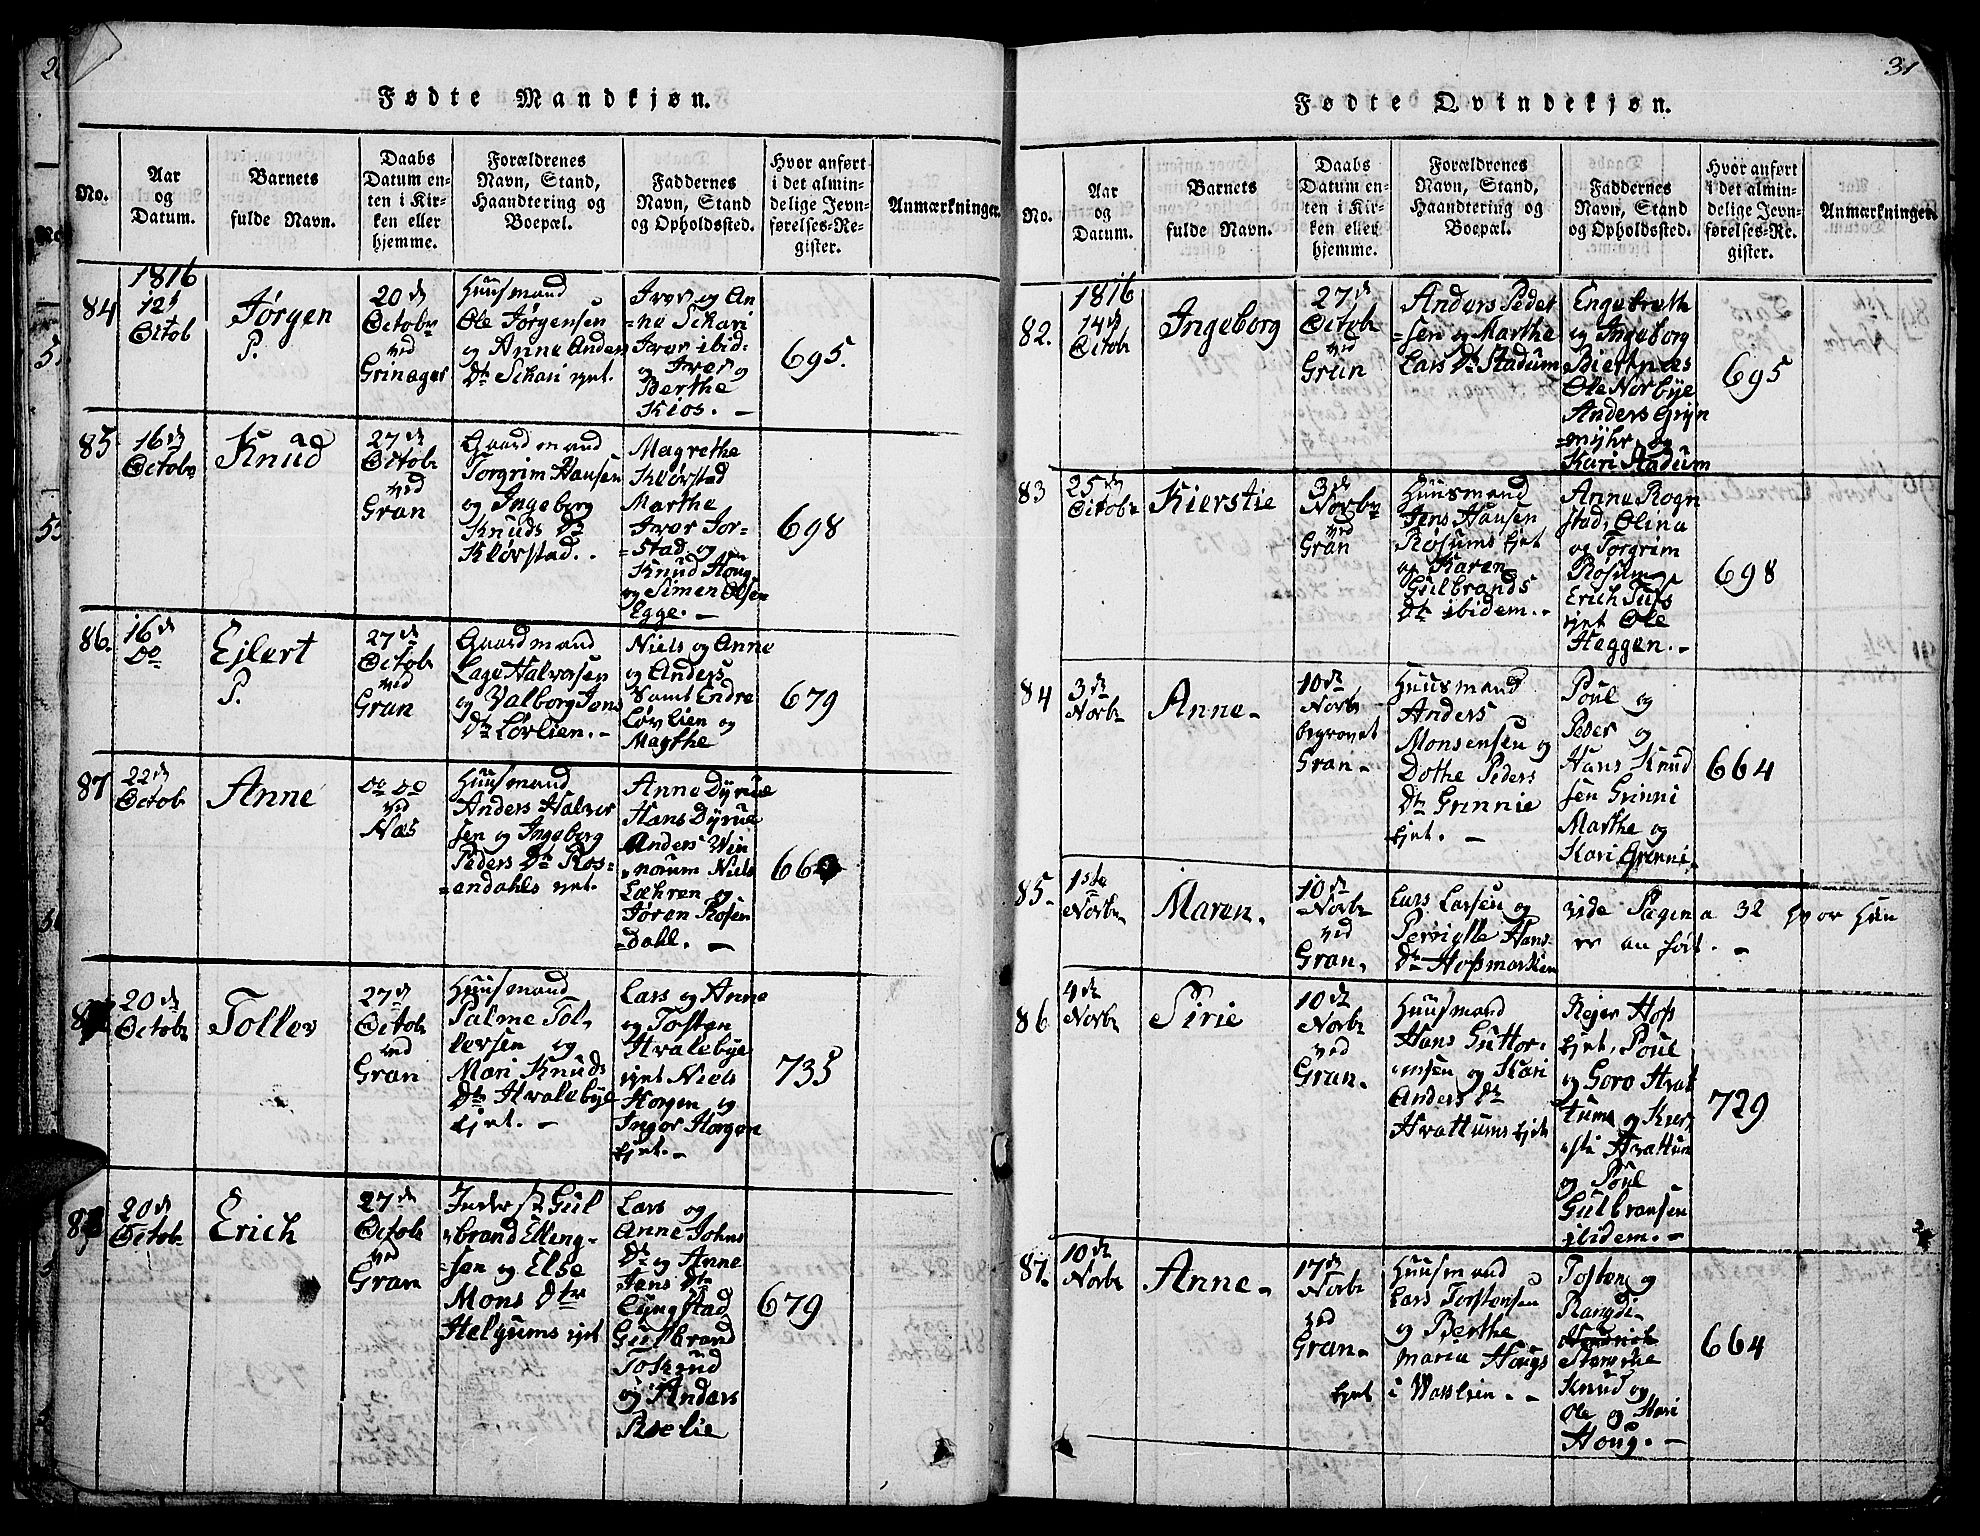 Fødte Mandkjøn.
No.
Aar
og
Datum.
Barnets
fulde Navn.
Daabs
Datum en-
ten i Kir-
ken eller
hjemme.
Forældrenes
Navn, Stand,
Haandtering og
Boepæl.
Faddernes
Navn, Stand
og Opholdssted.
Hvor anført
i det almin-
delige Jevn-
førelses-Re-
gister.
Anmærkninger.
84
1816
12
Octob
Jørgen
P.
20 d
Octobr
ved
Grinager
Huusmand
Ole Jørgensen
og Anne Anders
Dtr Schari ejet.
Iver og An
=ne Schari
Iver ibid-
og Iver og
Berthe
Kios. -
695.
85
16 d
Octobr
Knud
27 d
Octobr
ved
Gran
Gaardmand
Torgrim Hansen
og Ingeborg
Knuds Dtr
Klørstad.
Magrethe
Klørstad
Marthe
Iver Jor-
=stad og
Knud Houg
og Simen Olsen
Egge. -
698
86.
16 d
Do
Ejlert
P.
27 d
Octobr
ved
Gran
Gaardmand
Lage Halvorsen
og Valborg Jens
Dtr Løvlien. -
Niels og Anne
og Anders
samt Endre
Løvlien og
Marthe
679
87
22 d
Octob
Anne
Do Do
ved
Næs
Huusmand
Anders Halvor
sen og Ingeborg
Peders Dtr Ros=
=endahls ejet.
Anne Dyrud
Hans Dyrud
Anders Win
norum Niels
Læhren og
Jøren Rosen
=dahl. -
66
20 d
Octobr
Tollev
27 d
Octobr
ved
Gran
Huusmand
Palme Tol-
levsen og
Mari Knuds
Dtr Hvalebye
Ejet. -
Lars og Anne
og Tosten
Hvalebye
ejet Niels
Horgen og
Inger Horgen
Ejet. -
735
20 d
Octobr
Erich
27 d
Octobr
ved
Gran
Inderst Gul
brand Elleng-
=sen og Else
Mons Dtr
Helgums ejet
Lars og
Anne Johns
Dtr og Anne
Jens Dtr
Lyngstad
Gulbrand
Tokerud
og Anders
Roelie
679
31
Fødte Qvindekjøn.
No.
Aar
og
Datum.
Barnets
fulde Navn.
Daabs
Datum en-
ten i Kir-
ken eller
hjemme.
Forældrenes
Navn, Stand,
Haandtering og
Boepæl.
Faddernes
Navn, Stand
og Opholdssted.
Hvor anført
i det almin-
delige Jevn-
førelses-Re-
gister.
Anmærkninger.
82.
1816
14 d
Octobr
Ingeborg
27 d
Octobr
ved
Gran
Anders Peder
=sen og Marthe
Lars Dtr Stadum
Engebreth
og Ingeborg
Biertnæs
Ole Norbye
Anders Gryn
=myhr og
Kari Stadum
695
83
25 d
Octobr
Kierstie
3 d
Novbr
ved
Gran
Huusmand
Jens Hansen
Rosums Ejet
og Karen
Gulbrands
Dtr ibidem. -
Anne Rogn
stad, Olina
og Torgrim
Rosum
Erich Tufs
ejet Ole
Heggen. -
698
84
3 d
Novbr
Anne -
10 d
Novbr
begravet
Gran -
Huusmand
Anders
Monsensen og
Dothe Peders
Dtr Grinnie
Ejet. -
Poul og
Peder og
Hans Knud
sen Grinni
Marthe og
Kari Grinni.
664
85-
1ste
Novbr
Maren.
10 d
Novbr
ved
Gran.
Lars Larsen og
Pernille Hans-
Dtr Hofsmarken
vide Pagina 32 hvor hun
er anført. -
86
4 d
Novbr
Sirie
10 d
Novbr
ved
Gran.
Huusmand
Hans Guttor-
msen og Kari
Anders Dtr
Hvattums Ejet
Rejer Hofs
Ejet, Poul
og Goro Hvat
tums og Kier-
sti Hvattum
og Poul
Gulbransen
ibidem. -
729
87.
10 d
Novbr
Anne -
17 d
Novbr
ved
Gran -
Huusmand
Lars Torstensen
og Berthe
Maria Hougs
Ejet i Wasslien. -
Tosten og
Rangdi-
Knud og
Ole og Kari
Houg. -
664